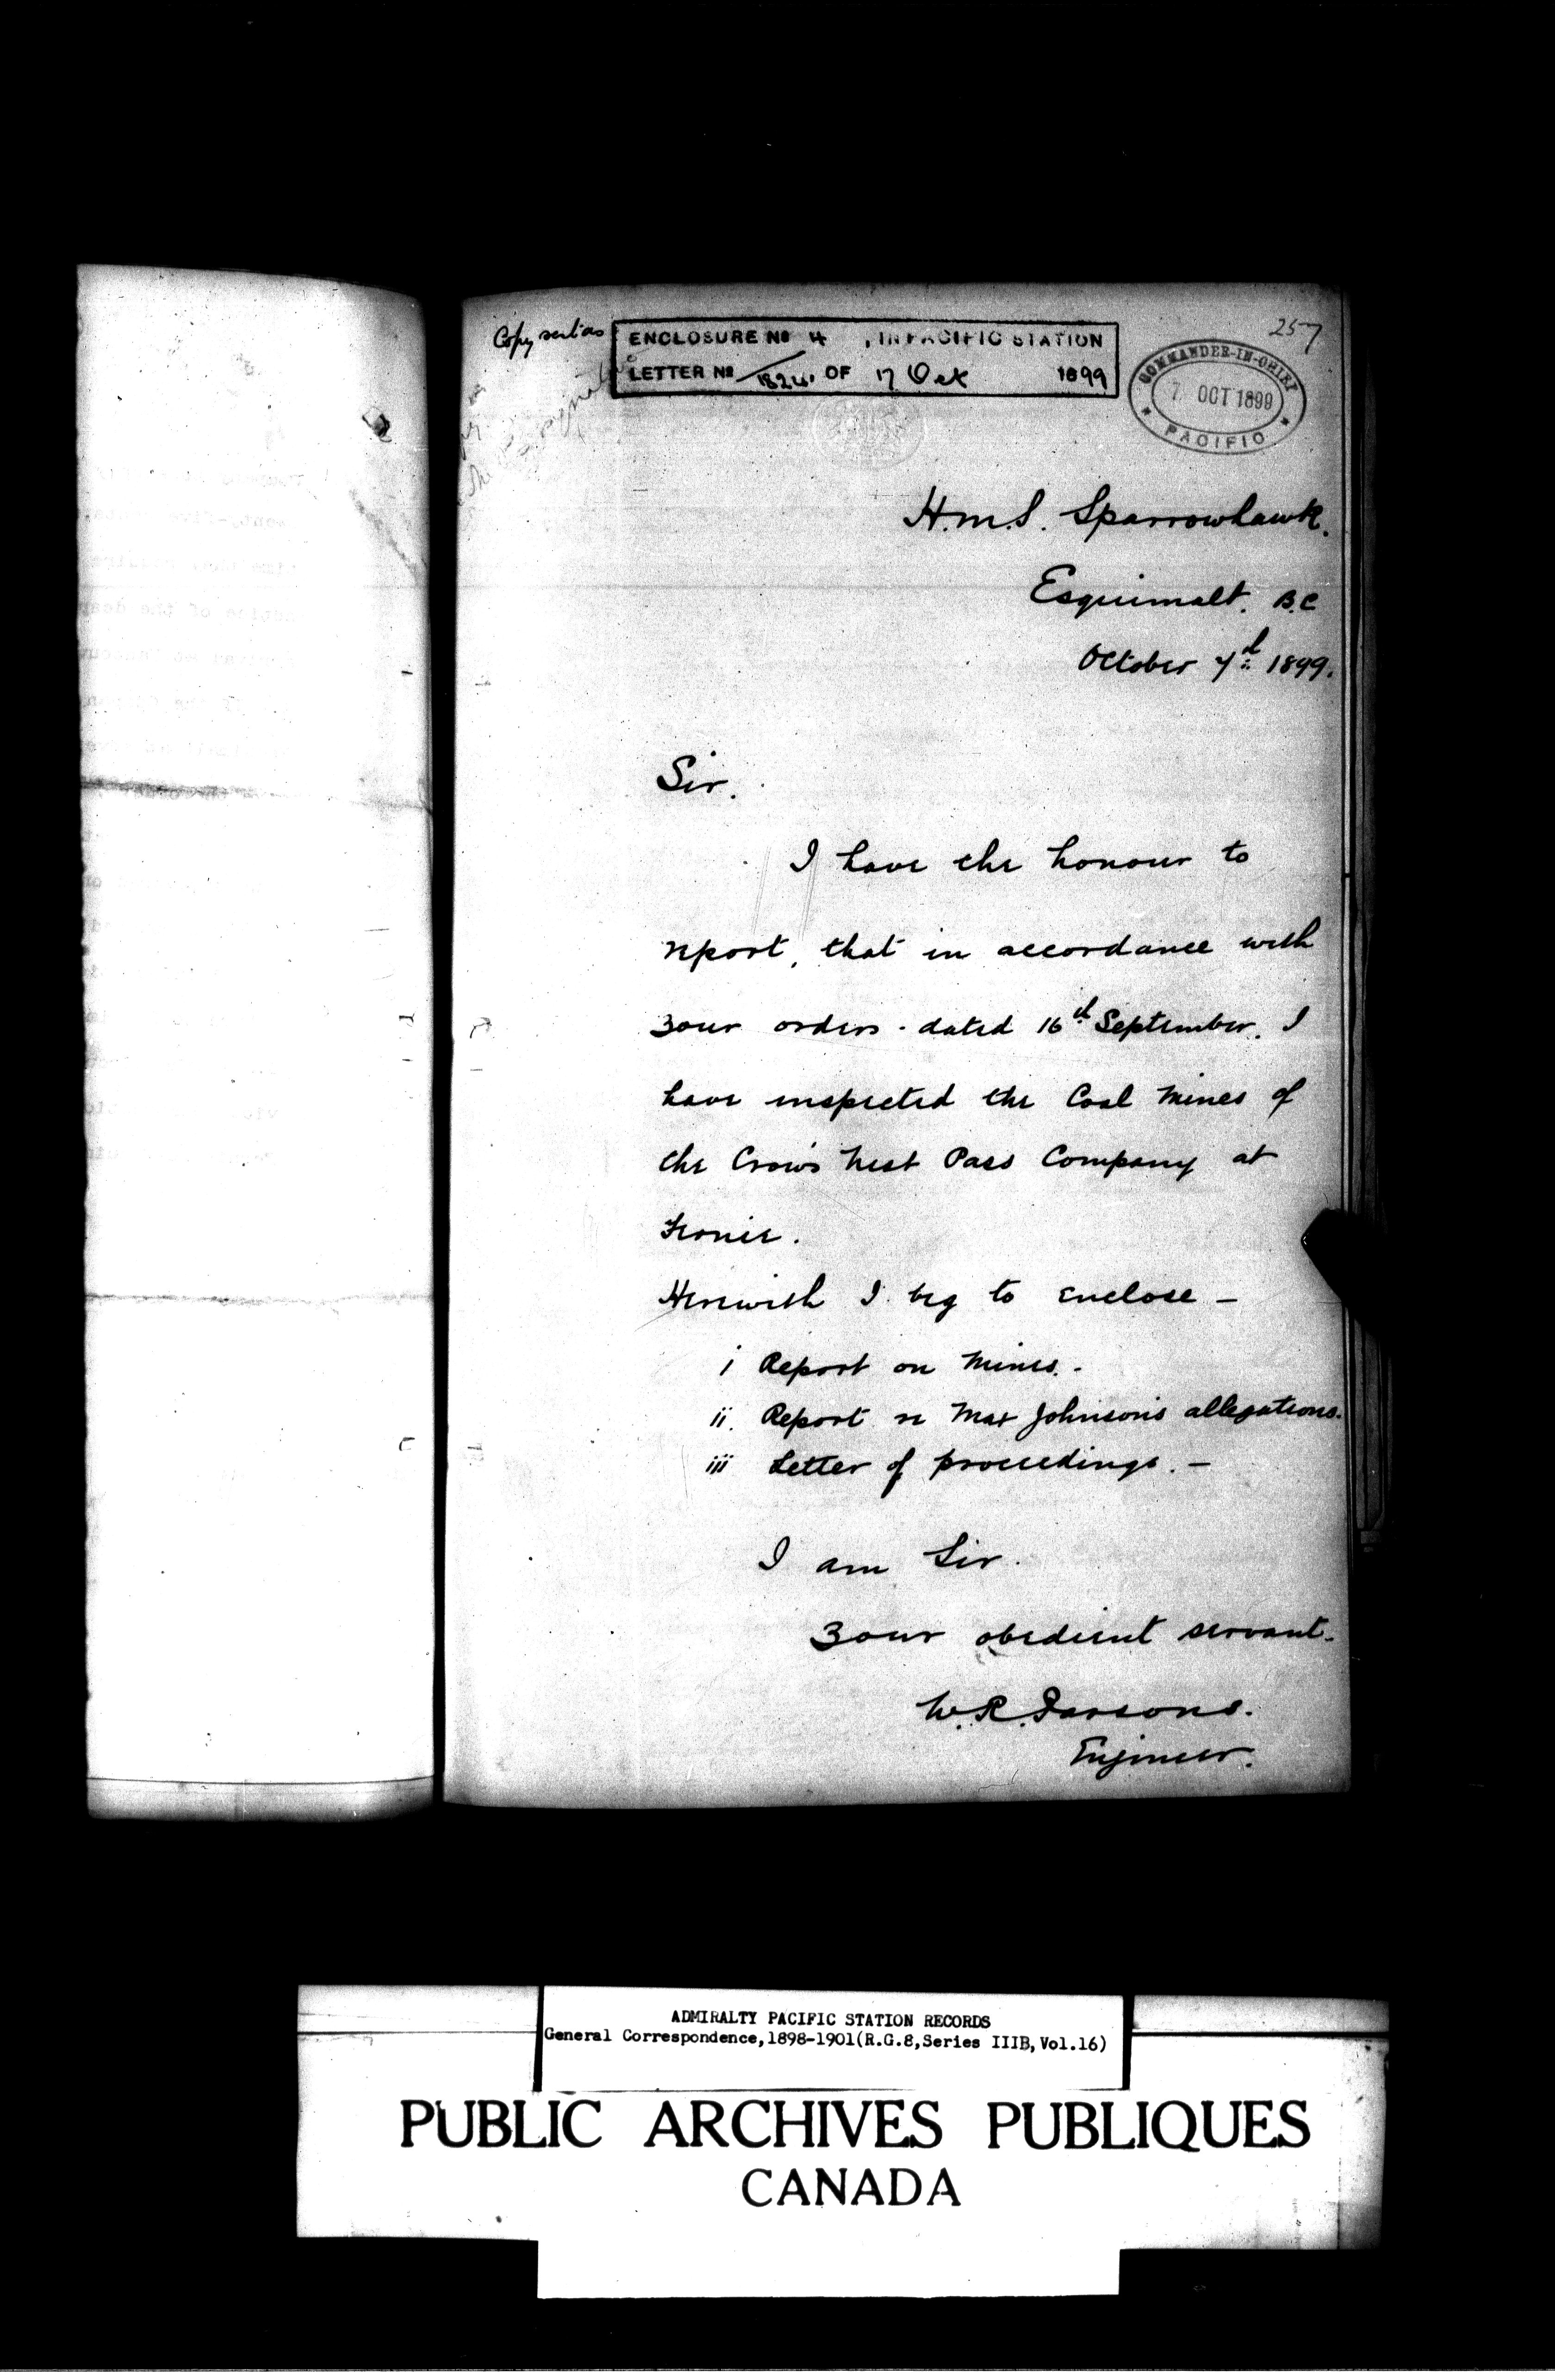 257
Copy sent as
ENCLOSURE No 4, IN PACIFIC STATION
LETTER No 1824 OF 17 Oct 1899
COMMANDER-IN-CHIEF
7 OCT 1899
PACIFIC
H.M.S. Sparrowhawk.
Esquimalt. B.C
October 7th 1899.
Sir.
I have the honour to
report, that in accordance with
your orders dated 16th September. I
have inspected the Coal Mines of
the Crow's Nest Pass Company at
Fernie.
Herewith I beg to enclose —
i Report on Mines. -
ii. Report re Max Johnson's allegations.
iii Letter of proceedings. —
I am Sir.
Your obedient servant.
W. R. Parsons.
Engineer.
ADMIRALTY PACIFIC STATION RECORDS
General Correspondence,1898-1901(R.G.8,Series IIIB,Vol.16)
PUBLIC ARCHIVES PUBLIQUES
CANADA